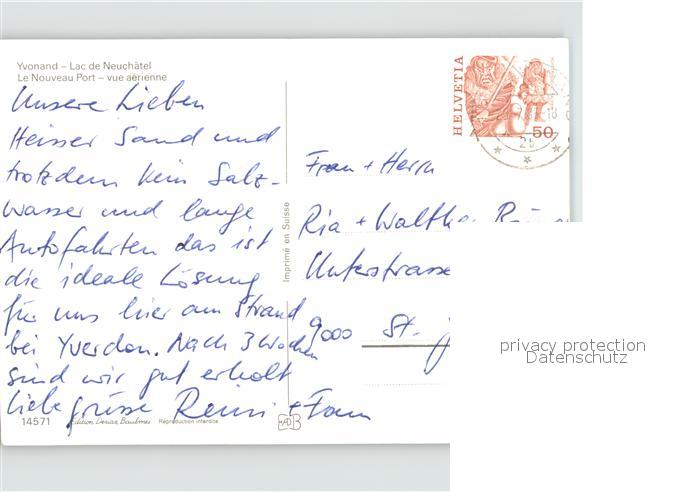 Yvonand – Lac de Neuchâtel
Le Nouveau Port – vue aérienne
Unsere Lieben
Heisser Sand und
trotzdem kein Salz-
wasser und lange
Autofahrten das ist
die ideale Lösung
für uns hier am Strand
bei Yverdon. Nach 3 Wochen
sind wir gut erholt
Liebe grüsse Reini + Fam
14571
Edition Deriaz, Baulmes
Reproduction interdite
Imprimé en Suisse
HELVETIA
50
Frau + Herrn
Ria + Walther
Unterstrasse
9000 St.
privacy protection
Datenschutz